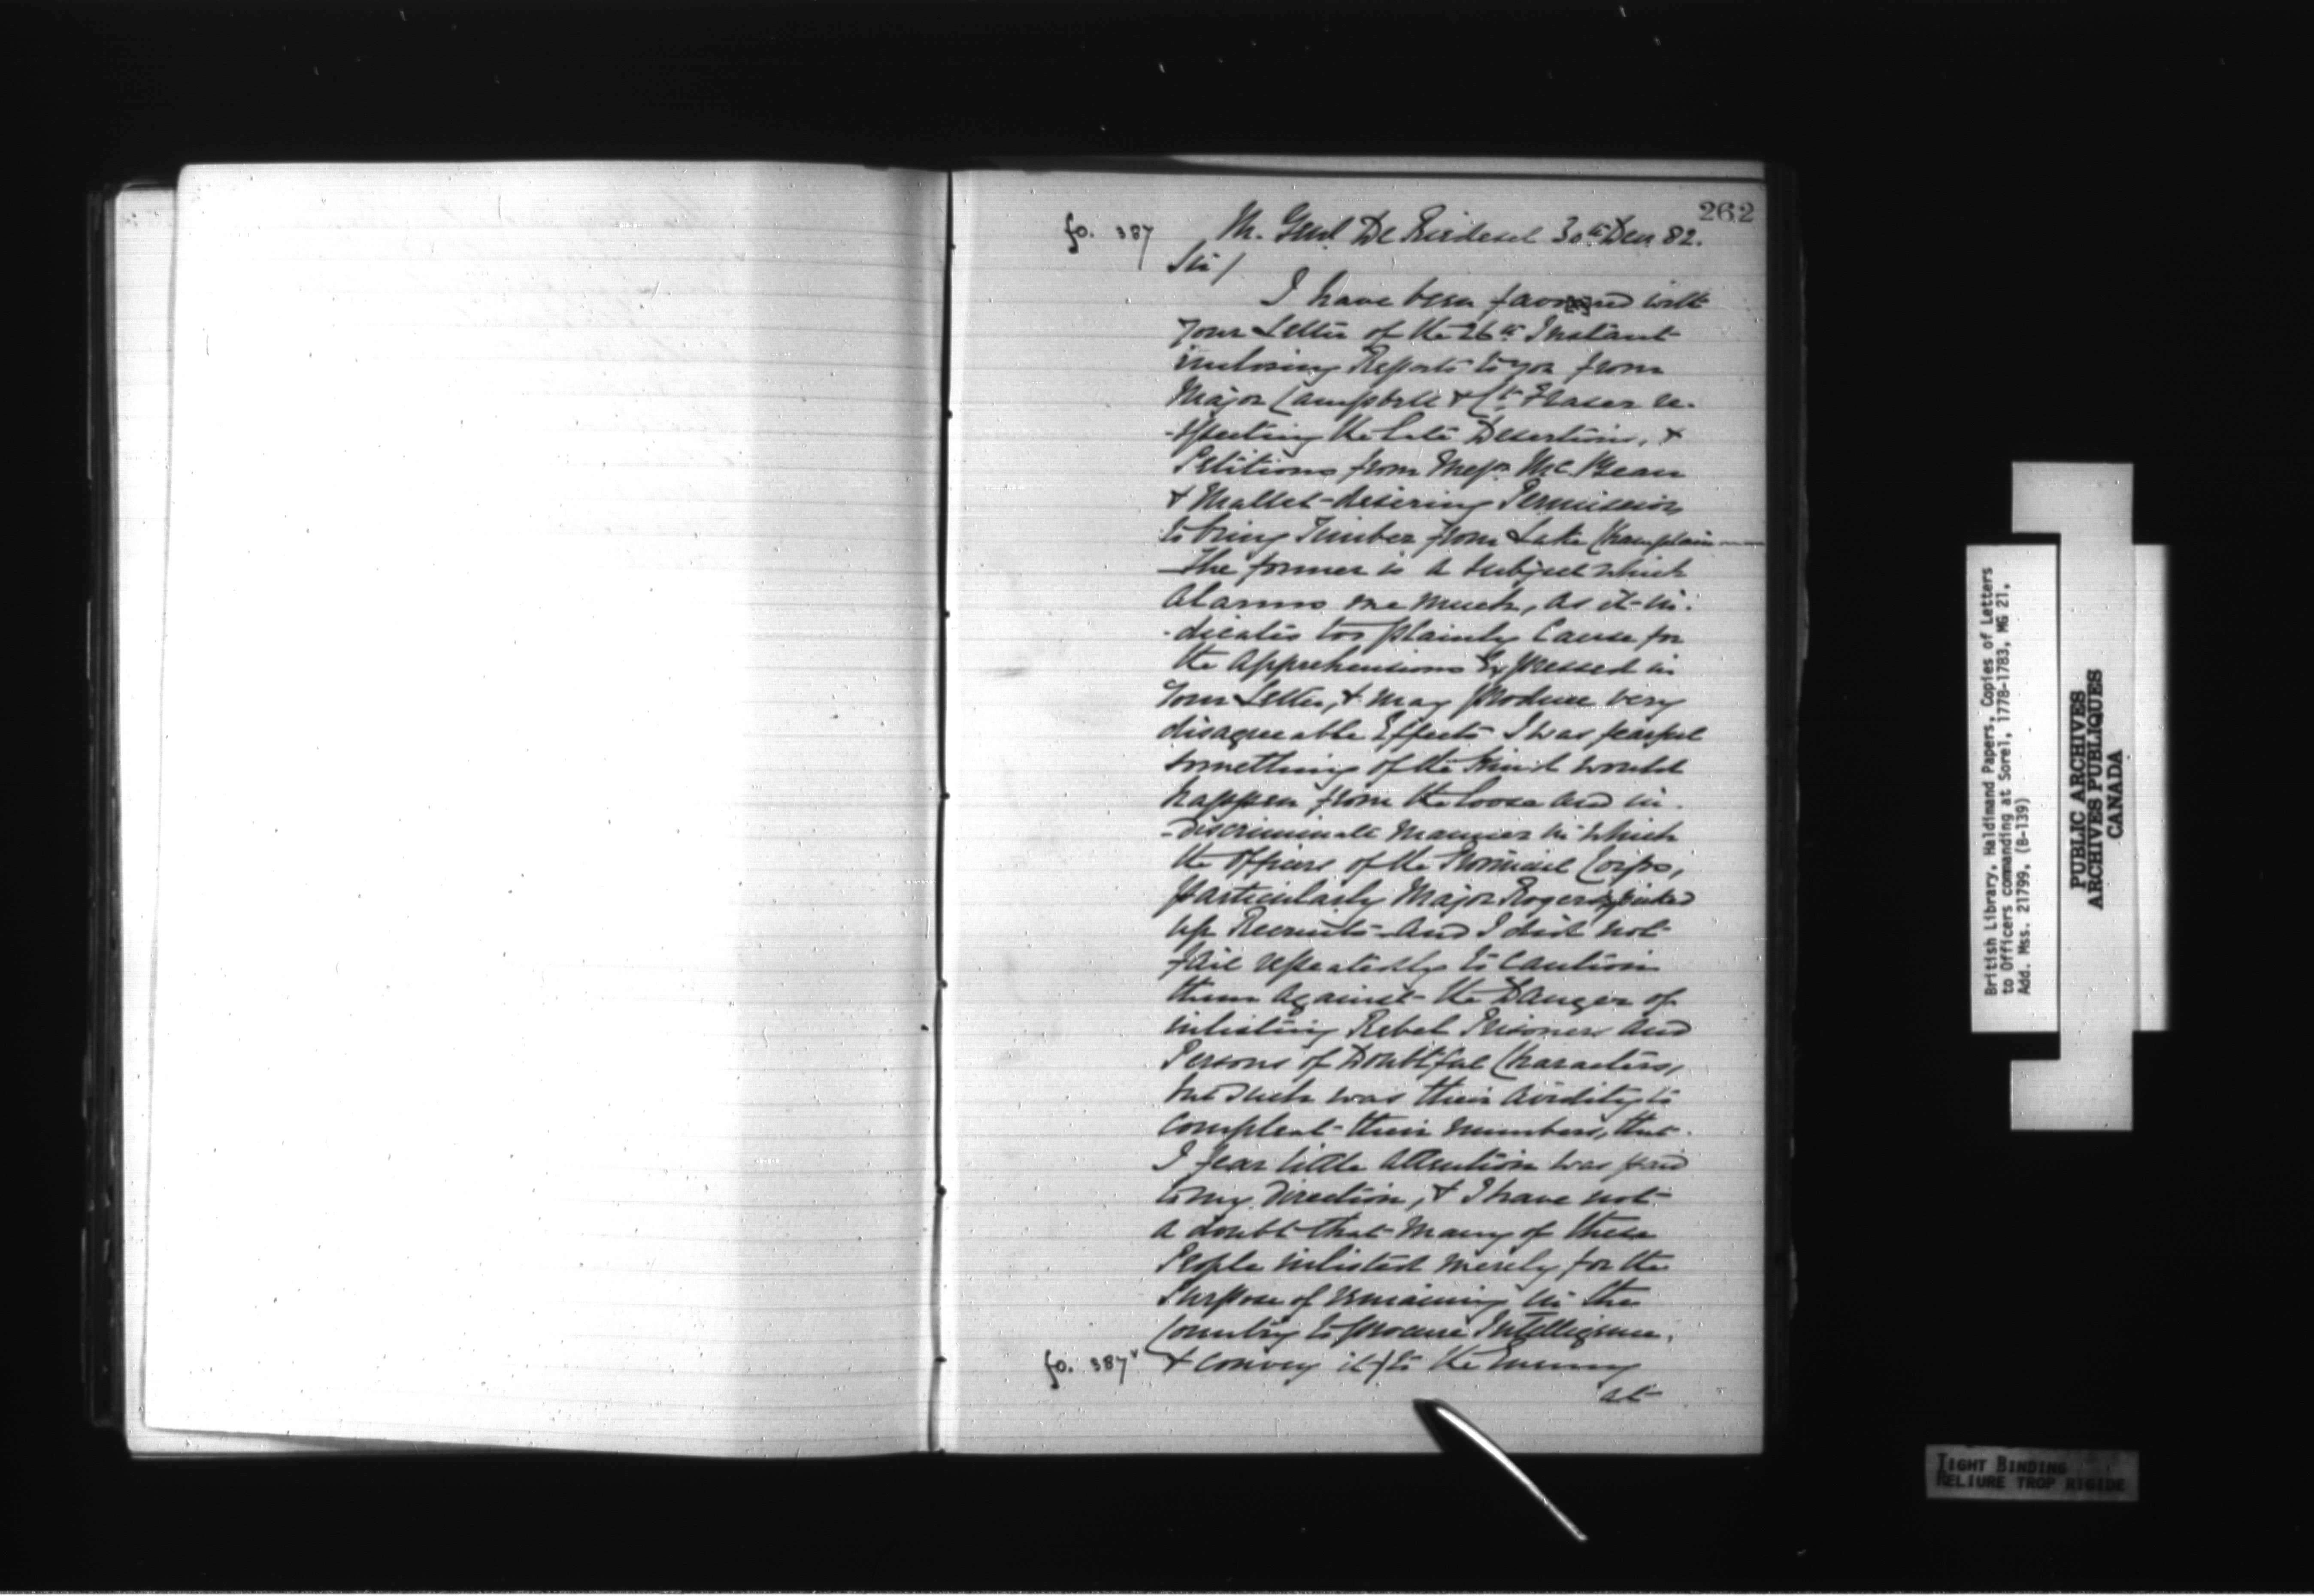 262
fo. 387 M. Genl De Riedesel 30th Decr 82.
Sir/
I have been favored with
your Letter of the 26th Instant
inclosing Reports to you from
Major Campbell & Ct. Fraser re-
-specting the late Desertions, &
Petitions from Messrs. McBean
& Mallet desiring Permission
to bring Timber from Lake Champlain—
—The former is a subject which
alarms me much, as it in-
-dicates too plainly Cause for
the Apprehensions Expressed in
Your Letter, & may produce very
disagreeable Effects I was fearful
something of the kind would
happen from the loose and in-
-discriminate manner in which
the Officers of the Provincial Corps,
particularly Major Rogers, picked
up Recruits—And I did not
fail repeatedly to caution
them against the Danger of
inlisting Rebel Prisoners and
Persons of Doubtful Characters,
but such was their avidity to
compleat their numbers, that
I fear little attention was paid
to my Direction, & I have not
a doubt that many of these
People inlisted merely for the
Purpose of remaining in the
Country to procure Intelligence,
fo. 387v & convey it/to the Enemy
at
British Library, Haldimand Papers, Copies of Letters
to Officers commanding at Sorel, 1778-1783, MG 21,
Add. Mss. 21799, (B-139)
PUBLIC ARCHIVES
ARCHIVES PUBLIQUES
CANADA
TIGHT BINDING
RELIURE TROP RIGIDE